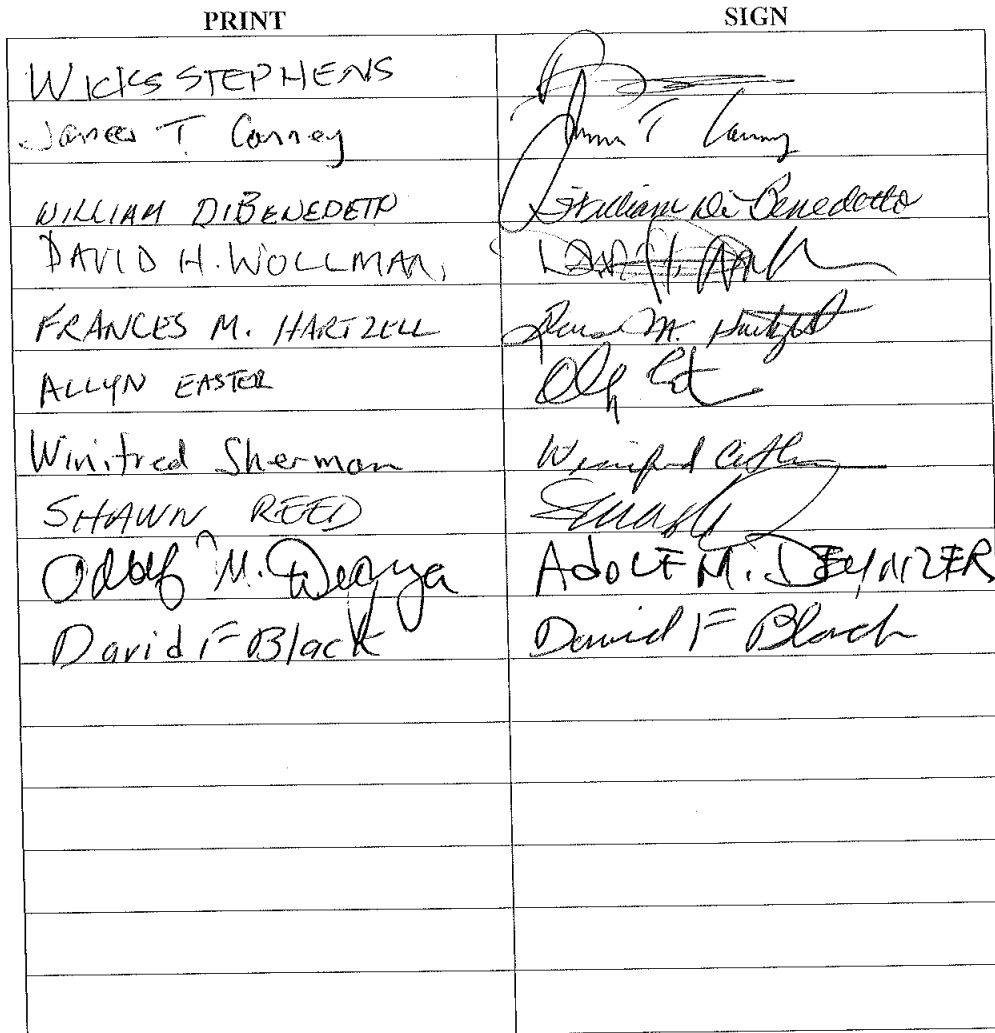 PRINT SIGN
WICKS STEPHENS
James T. Canney James T Canney
WILLIAM DIBENEDETTO William Di Benedetto
DAVID H. WOLLMAN,
FRANCES M. HARTZELL Frances M. Hartzell
ALLYN EASTER
Winifred Sherman Winifred
SHAWN REED
Adolf M. ADOLF M. DEYNZER
David F Black David F Black